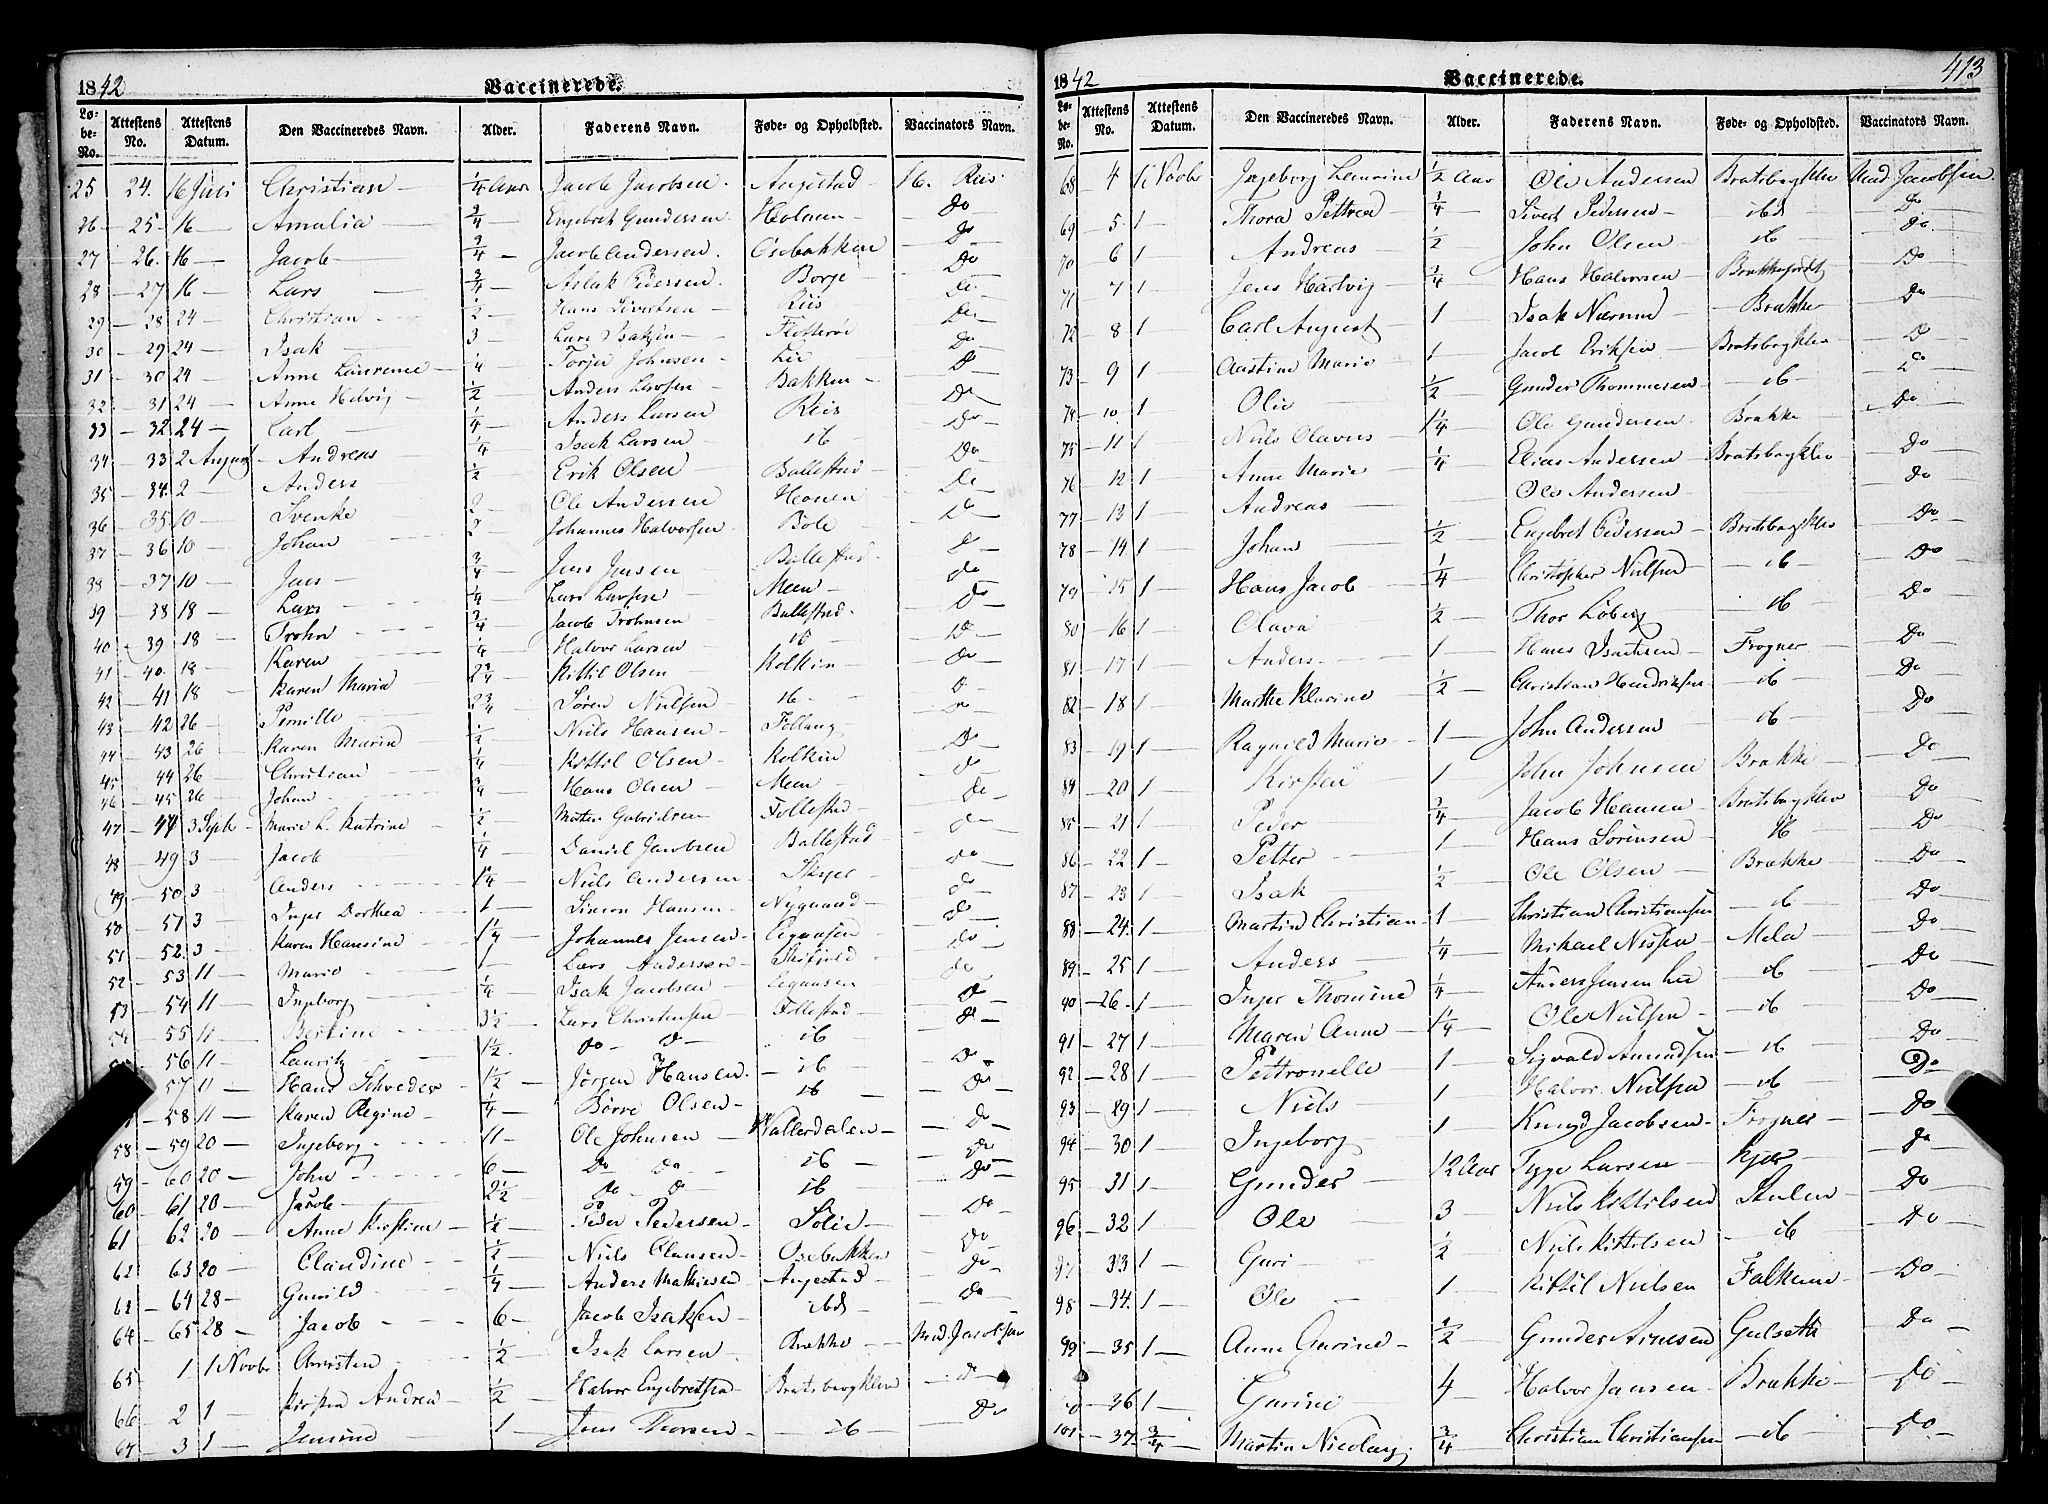 1842
Vaccinerede.
Løbe-No. Attestens No. Attestens Datum. Den Vaccineredes Navn. Alder. Faderens Navn. Føde- og Opholdsted. Vaccinators Navn.
25 24. 16 Juli Christian 1/4 Aar Jacob Jacobsen Angestad H. Riis
26 25 16 Amalia 3/4 Engebret Gundersen Holmen Do
27 26 16 Jacob 3/4 Jacob Andersen Osebakken Do
28 27 16 Lars 3/4 Aslak Pedersen Borge Do
29 28 24 Christian 1/2 Hans Sivertsen Riis Do
30 29 24 Isak 3 Lars Isaksen Do
31 30 24 Anne Laurence 1/4 Torje Johnsen Lie Do
32 31 24 Anne Helvig 1/2 Anders Larsen Bakken Do
33 32 24 Carl 1/4 Anders Larsen Riis Do
34 33 2 August Andreas 1/4 Isak Larsen ib Do
35 34 2 Anders 1/2 Erik Olsen Ballestad Do
36 35 10 Svenke 2 Ole Andersen Honen Do
37 36 10 Johan 2 Johannes Halvorsen Bole Do
38 37 10 Jens 3/4 Jens Jensen Ballestad Do
39 38 18 Lars 1/4 Lars Larsen Meen Do
40 39 18 Trohn 3/4 Jacob Trohnsen Ballestad Do
41 40 18 Karen 1/4 Halvor Larsen ib Do
42 41 18 Karen Maria 2 3/4 Kittil Olsen Kolkin Do
43 42 26 Pernille 2 3/4 Søren Nielsen ib Do
44 43 26 Karen Maria 1/2 Niels Hansen Do
45 44 26 Christian 1/4 Kittil Olsen Kolkin Do
46 45 26 Johan 3/4 Hans Olsen Meen Do
47 47 3 Septb Marie L. Katrine 1/2 Gabrielsen Follestad Do
48 49 3 Jacob 1/4 Daniel Jacobsen Ballestad Do
49 50 3 Anders 1 1/4 Niels Andersen Do
50 51 3 Inger Dorthea 1 Simon Hansen Nygaard Do
51 52 3 Karen Hansine 1 1/4 Johannes Jensen Do
52 53 11 Marie 1 Lars Andersen Do
53 54 11 Ingeborg 1/4 Isak Jacobsen Do
54 55 11 Bertine 3 1/2 Lars Christensen Follestad Do
56 11 Lauritz 1 1/2 Do Do ib Do
57 11 Hans Schrøder 1 1/2 Jørgen Hansen ib Do
58 11 Karen Regine 1/4 Børre Olsen ib Do
58 59 20 Ingeborg 11 Ole Johnsen Vallerdalen Do
59 60 20 John 6 Do Do ib Do
60 61 20 Jacob 2 1/2 Do Do ib Do
61 62 20 Anne Kirstine 1/2 Peder Pedersen Solie Do
62 63 20 Claudine 1/2 Niels Clausen Osebakken Do
63 64 28 Gunild 1/4 Anders Mathiesen Angestad Do
64 65 28 Jacob 6 Jacob Isaksen ibd Do
65 1 1 Novbr Christen 1/2 Isak Larsen Brække Mad. Jacobsen
66 2 1 Kirsten Andrea 1/2 Halvor Engebretsen Bratsbergklev Do
67 3 1 Jensine 1 Jens Thorsen ib Do
1842
Vaccinerede.
413
Løbe-No. Attestens No. Attestens Datum. Den Vaccineredes Navn. Alder. Faderens Navn. Føde- og Opholdsted. Vaccinators Navn.
68 4 1 Novbr Ingeborg Laurine 1/2 Aar Ole Andersen Bratsbergklev Mad Jacobsen
69 5 1 Thora Pettrea 1/4 Sivert Pedersen ibd Do
70 6 1 Andreas 1/2 John Olsen ib Do
71 7 1 Jens Hartvig 1/4 Hans Halvorsen Do
72 8 1 Carl August 1 Isak Brække Do
73 9 1 Marie 1 Jacob Eriksen Bratsbergklev Do
74 10 1 Olie 1/2 Gunder Thommesen ib Do
75 11 1 Niels Olavus 1 1/4 Ole Gundersen Brække Do
76 12 1 Anne Marie 1/4 Elias Andersen Bratsbergklev Do
77 13 1 Andreas Ole Andersen Do
78 14 1 Johan 1/2 Engebret Pedersen Bratsbergklev Do
79 15 1 Hans Jacob 1/4 Christopher Nielsen ib Do
80 16 1 Olava 1/2 Thor Løberg ib Do
81 17 1 Anders 1 Hans Isachsen Frogner Do
82 18 1 Marthe Klarine 1/2 Christian Hendriksen ib Do
83 19 1 Ragnild Marie 1 John Andersen ib Do
84 20 1 Kirsten 1 John Johnsen Brække Do
85 21 1 Peder 3/4 Jacob Hansen Bratsbergklev Do
86 22 1 Petter 1 Hans Sørensen ib Do
87 23 1 Isak 1/2 Ole Olsen Brække Do
88 24 1 Martin Christian 1 Christian Christiansen ib Do
89 25 1 Anders 1/4 Mikael Nissen Mela Do
90 26 1 Inger Thomine 1/4 Anders Jensen Lie ib Do
91 27 1 Maren Anne 1 1/4 Ole Nielsen ib Do
92 28 1 Pettronelle 1 Sigvald Amundsen ib Do
93 29 1 Niels 1 Halvor Nielsen ib Do
94 30 1 Ingeborg 1 Knud Jacobsen Frogner Do
95 31 1 Gunder 12 Aar Tyge Larsen Kjær Do
96 32 1 Ole 3 Niels Kittilsen Stulen Do
97 33 1 Guri 1/2 Niels Kittilsen ib Do
98 34 1 Ole 1 Kittil Nielsen Falkum Do
99 35 1 Anne Gurine 1/2 Gunder Arnesen Gulseth Do
36 1 Gurine 4 Halvor Jansen Brække Do
101 37 3/4 Martin Nicolay 3/4 Christian Christiansen ib Do